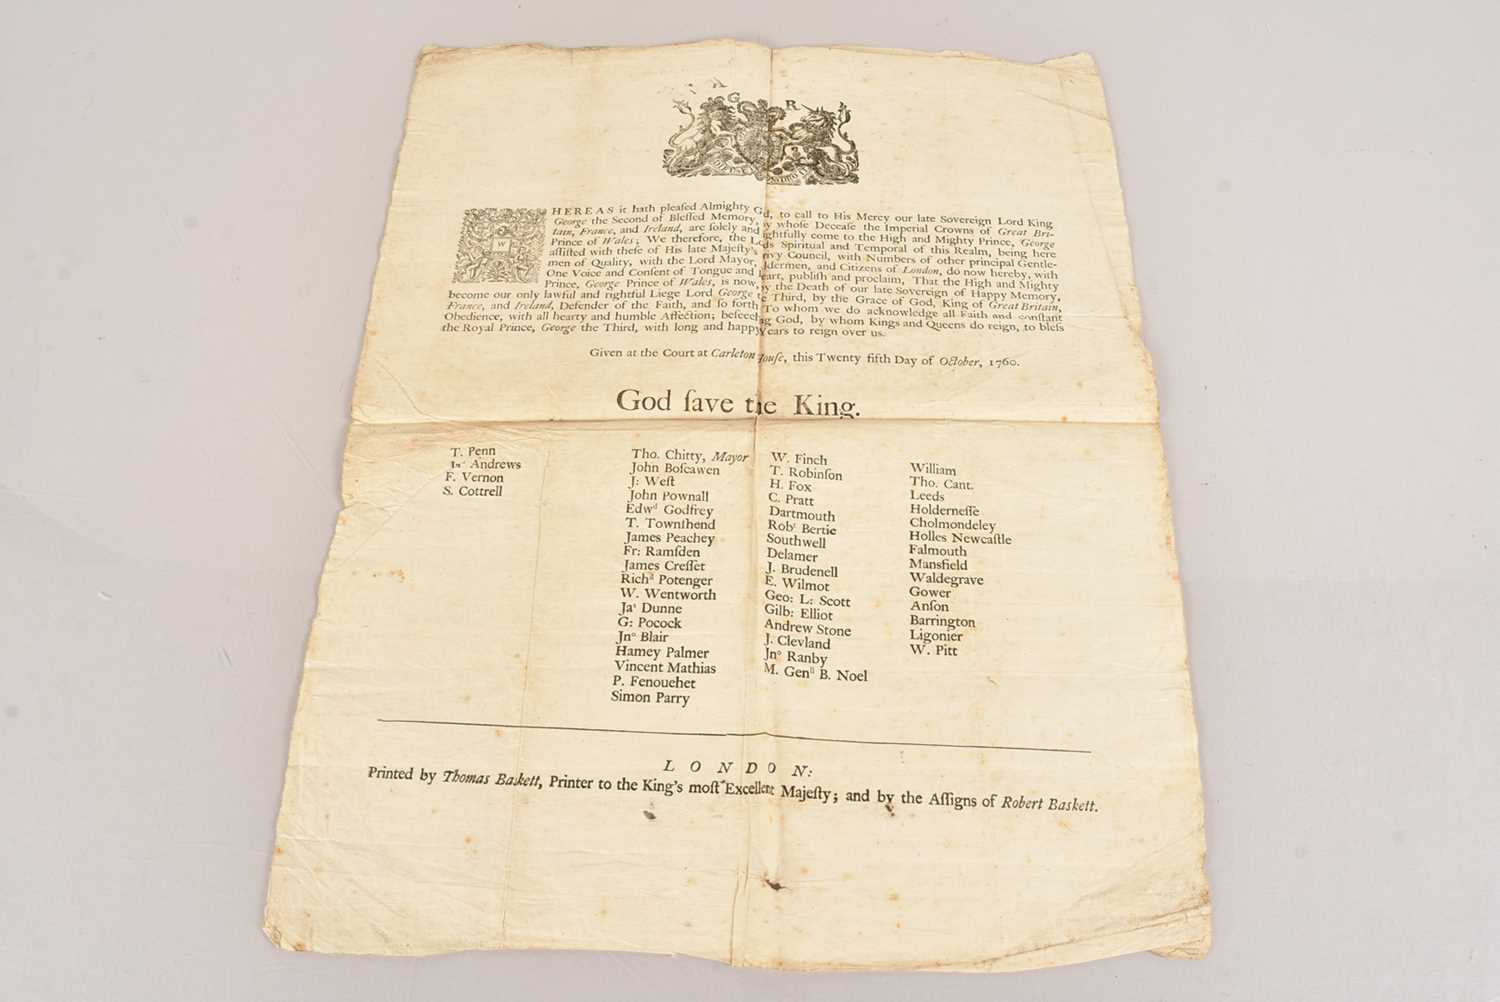 G R
WHEREAS it hath pleaſed Almighty G d, to call to His Mercy our late Sovereign Lord King
George the Second of Bleſſed Memory, y whoſe Deceaſe the Imperial Crowns of Great Bri-
tain, France, and Ireland, are ſolely and ightfully come to the High and Mighty Prince, George
Prince of Wales; We therefore, the L ds Spiritual and Temporal of this Realm, being here
aſſiſted with theſe of His late Majeſty's vy Council, with Numbers of other principal Gentle-
men of Quality, with the Lord Mayor, ldermen, and Citizens of London, do now hereby, with
One Voice and Conſent of Tongue and eart, publiſh and proclaim, That the High and Mighty
Prince, George Prince of Wales, is now, y the Death of our late Sovereign of Happy Memory,
become our only lawful and rightful Liege Lord George t e Third, by the Grace of God, King of Great Britain,
France, and Ireland, Defender of the Faith, and ſo forth To whom we do acknowledge all Faith and conſtant
Obedience, with all hearty and humble Affection; beſeech ng God, by whom Kings and Queens do reign, to bleſs
the Royal Prince, George the Third, with long and happy Years to reign over us.
Given at the Court at Carleton Houſe, this Twenty fifth Day of October, 1760.
God ſave the King.
T. Penn
Jnº Andrews
F. Vernon
S. Cottrell
Tho. Chitty, Mayor
John Boſcawen
J: Weſt
John Pownall
Edwᵈ Godfrey
T. Townſhend
James Peachey
Fr: Ramſden
James Creſſet
Richᵈ Potenger
W. Wentworth
Jaˢ Dunne
G: Pocock
Jnº Blair
Hamey Palmer
Vincent Mathias
P. Fenouehet
Simon Parry
W. Finch
T. Robinſon
H. Fox
C. Pratt
Dartmouth
Robᵗ Bertie
Southwell
Delamer
J. Brudenell
E. Wilmot
Geo: L: Scott
Gilb: Elliot
Andrew Stone
J. Clevland
Jnº Ranby
M. Genˡˡ B. Noel
William
Tho. Cant.
Leeds
Holderneſſe
Cholmondeley
Holles Newcaſtle
Falmouth
Mansfield
Waldegrave
Gower
Anſon
Barrington
Ligonier
W. Pitt
LONDON:
Printed by Thomas Baſkett, Printer to the King's moſt Excellent Majeſty; and by the Aſſigns of Robert Baskett.